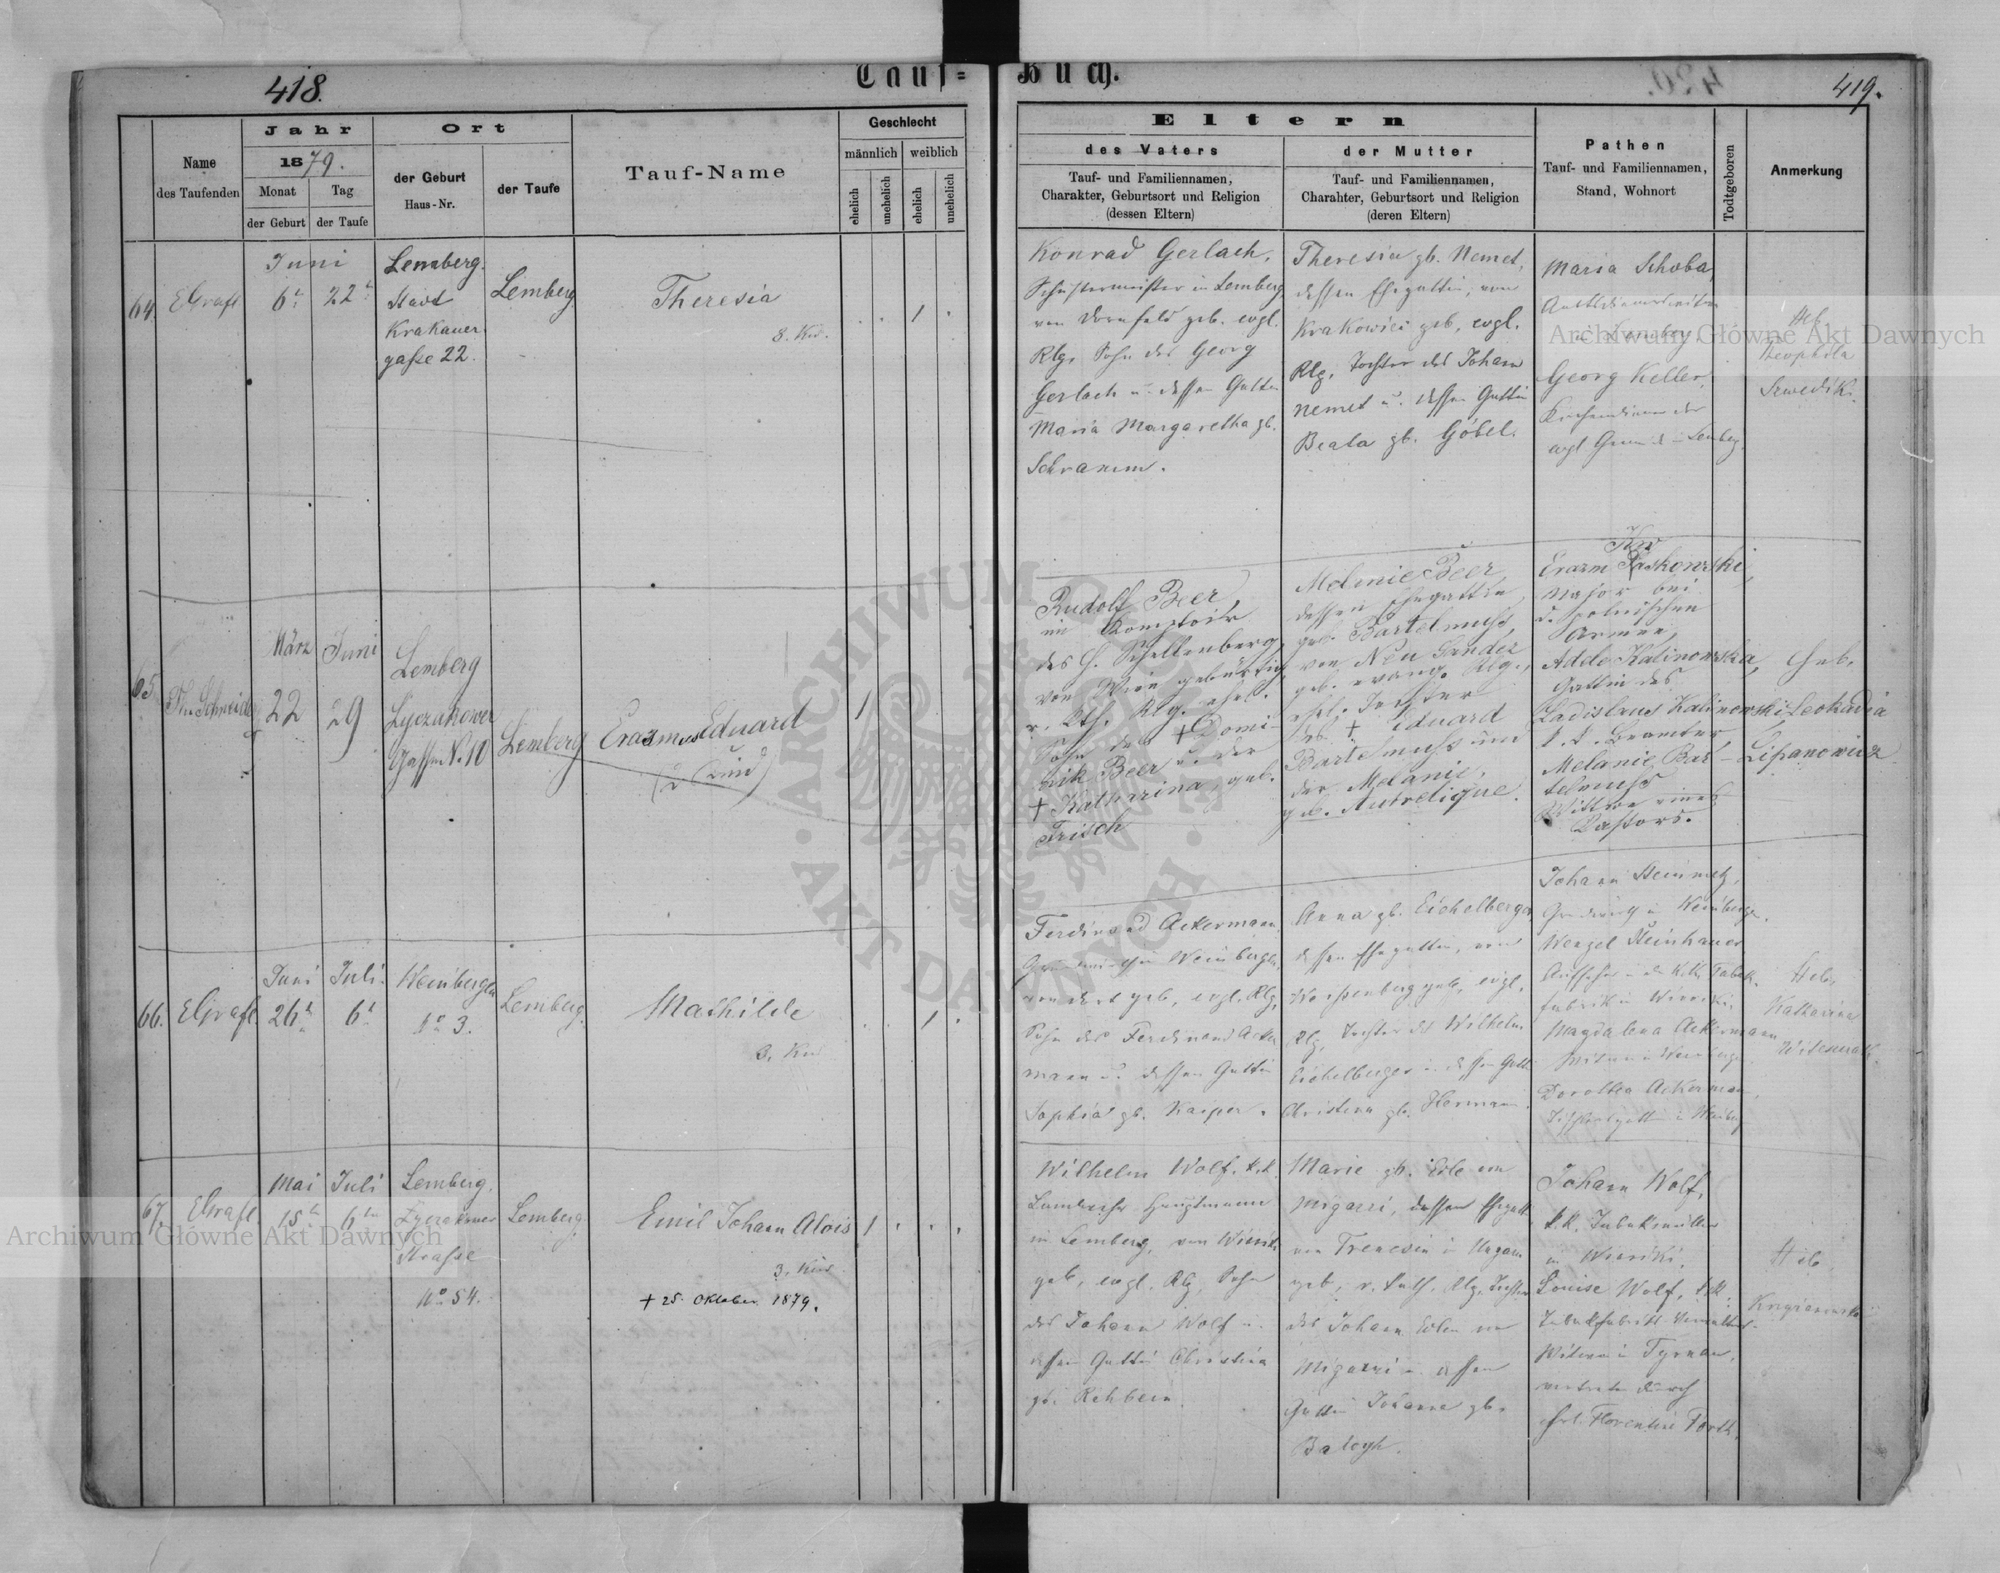 418.
Tauf=
Buch.
419.
Name
des Taufenden
Jahr
1879.
Monat
der Geburt
Tag
der Taufe
Ort
der Geburt
Haus-Nr.
der Taufe
Tauf-Name
Geschlecht
männlich
weiblich
ehelich
unehelich
ehelich
unehelich
Eltern
des Vaters
Tauf- und Familiennamen,
Charakter, Geburtsort und Religion
(dessen Eltern)
der Mutter
Tauf- und Familiennamen,
Charahter, Geburtsort und Religion
(deren Eltern)
Pathen
Tauf- und Familiennamen,
Stand, Wohnort
Todtgeboren
Anmerkung
64.
EGrafl
Juni
6t
22t
Lemberg.
Stadt
Krakauer
gaße 22.
Lemberg
Theresia
3. Kin.
1
Konrad Gerlach,
Schustermeister in Lemberg
von Dornfeld geb. evgl.
Rlg. Sohn des Georg
Gerlach u. dessen Gattin
Maria Margaretha gb.
Schramm.
Theresia gb. Nemet,
dessen Ehegattin, von
Krakowiec geb, evgl.
Rlg. Tochter des Johann
Nemet u. dessen Gattin
Beata gb. Göbel.
Maria Schoba,
in Lemberg.
Georg Keller,
Kirchendiener der
evgl. Gemeinde in Lemberg.
Heb.
Theophila
65.
Schneider
März
22
Juni
29
Lemberg
Lyczakower
Gassen No. 10
Lemberg
Erasmus Eduard
(2 Kind)
1
Rudolf Beer,
im Komptoir
des H. Schellenberg,
von Wien gebürtig,
r. kth. Rlg. ehel.
Sohn des † Domi-
nik Beer u. der
† Katharina, geb.
Frisch
Melanie Beer,
dessen Ehegattin,
geb. Bartelmuss,
von Neu Sandez
geb. evang. Rlg.,
ehel. Tochter
des † Eduard
Bartelmuss und
der Melanie,
geb. Autrelique.
Erazm
Major bei
d. polnischen
Armee,
Adele Kalinowska,
Gattin des
Ladislaus Kalinowski,
k. k. Beamter,
Melanie Bar-
telmuss
Wittwe eines
Pastors.
Heb.
Leokadia
Lipanowicz
66.
EGrafl.
Juni
26t
Juli.
6t
Weinbergen
No 3.
Lemberg.
Mathilde
3. Kin
1
Ferdinand Ackermann,
Grundwirth in Weinbergen,
von dort geb, evgl. Rlg,
Sohn des Ferdinand Acker
mann u. dessen Gattin
Sophia gb. Kaiper.
Anna gb. Eichelberger
dessen Ehegattin, von
geb. evgl.
Rlg. Tochter des Wilhelm
Eichelberger u. dessen Gattin
Christina gb. Hermann.
Johann Steinmetz,
Grundwirth in Weinbergen.
Wenzel Steinhauer
Aufseher in der k. k. Tabak-
fabrik in Winniki.
Magdalena Ackermann
Witwe in Weinbergen.
Dorothea Ackermann,
Heb,
Katharina
67.
EGrafl.
Mai
15t
Juli
6tn
Lemberg.
Lyczakower
Strasse
No 54.
Lemberg.
Emil Johann Alois
3. Kin.
† 25. Oktober 1879.
1
Wilhelm Wolf, k.k.
Landwehr Hauptmann
in Lemberg, von Winniki
geb, evgl. Rlg, Sohn
des Johann Wolf u.
dessen Gattin Christina
gb. Rehbein.
Marie gb. Edle von
Migazzi, dessen Ehegatt
von Trencsin in Ungarn
geb, r. kath. Rlg. Tochter
des Johann Edlen von
Migazzi u. dessen
Gattin Johanna gb.
Balogh.
Johann Wolf,
in Winniki.
Louise Wolf, k.k.
Tabakfabriks-Verwalters-
Witwe in Tyrnau,
vertreten durch
Frl. Florentine
Heb.
Archiwum Główne Akt Dawnych
Archiwum Główne Akt Dawnych
ARCHIWUM GŁÓWNE · AKT DAWNYCH ·